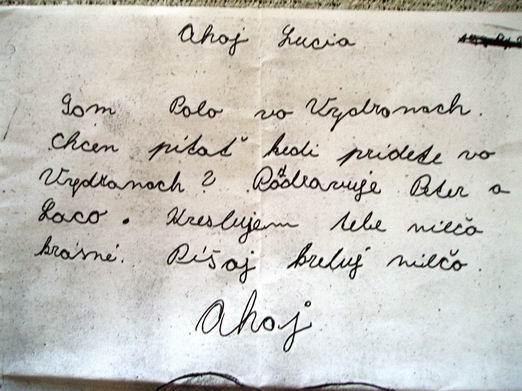 Ahoj Lucia
Som Palo vo Vydranoch.
Chcen pítať kedi pridete vo
Vydranoch? Pozdravuje Peter a
Laco. Kreslujem tebe niečo
krásné. Píšaj kreluj niečo.
Ahoj